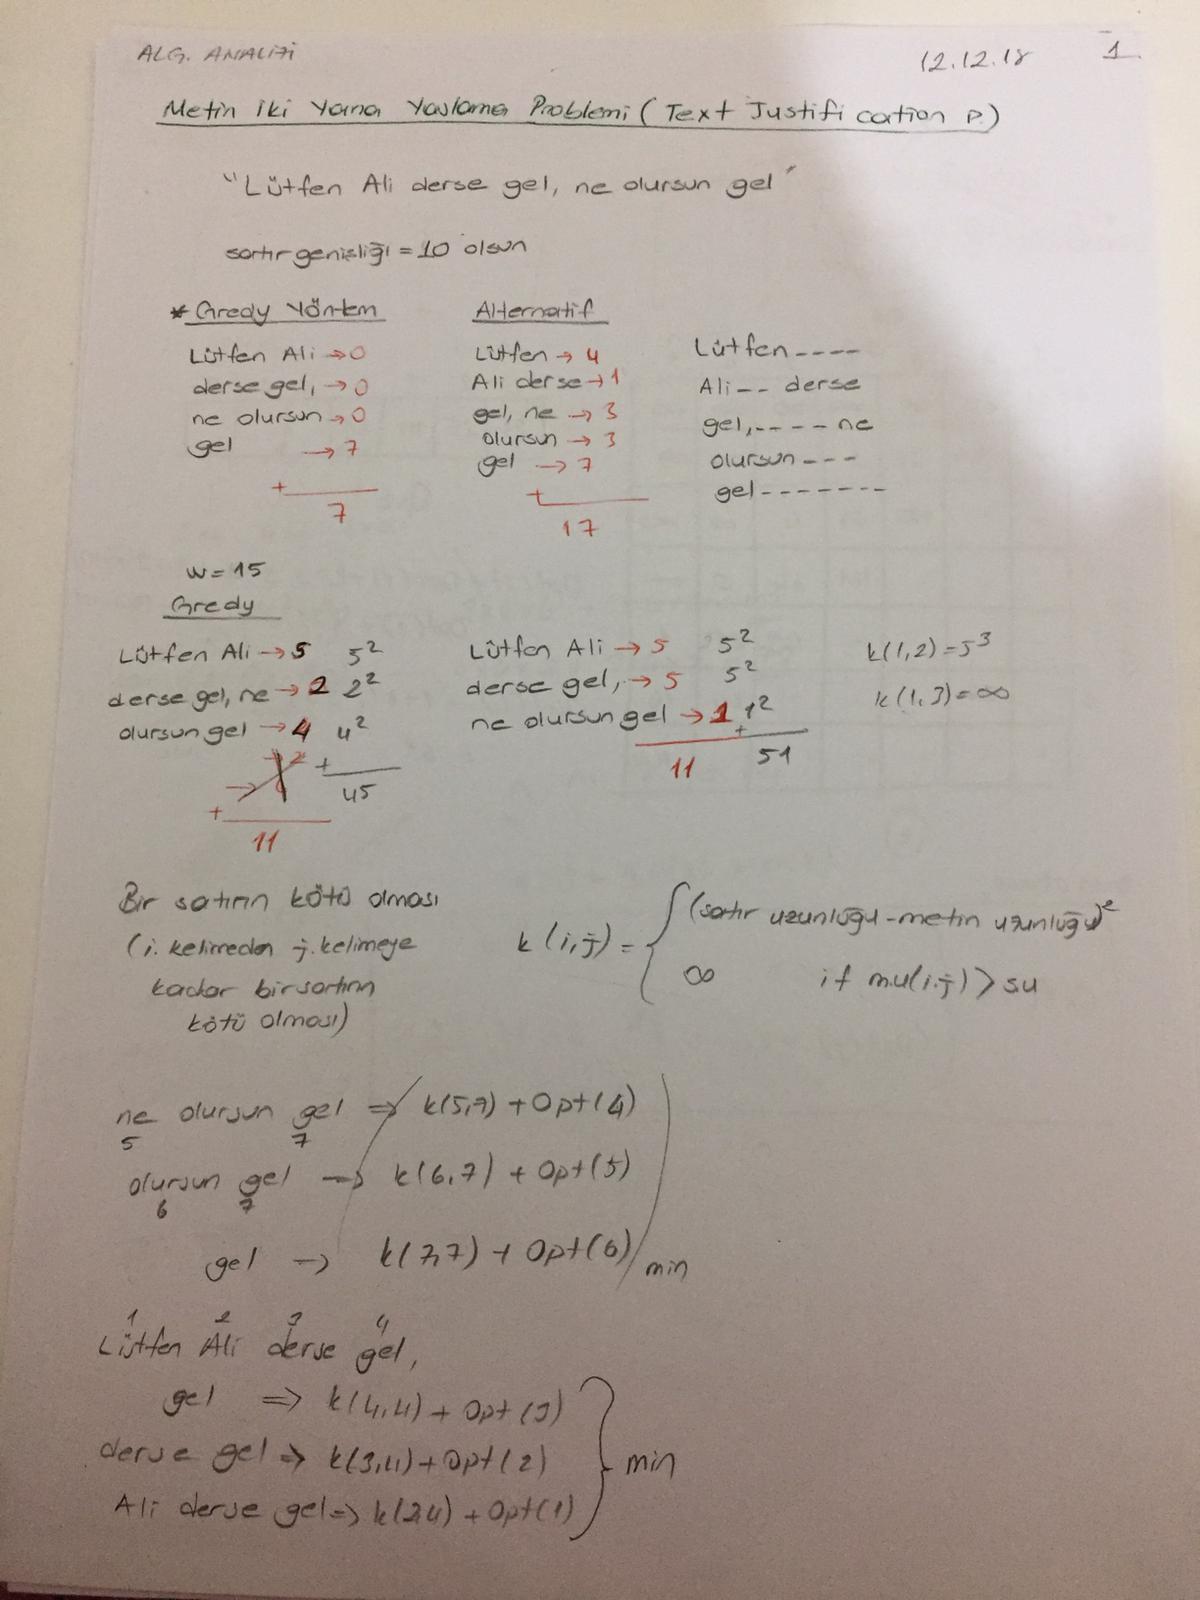 ALG. ANALİZİ
12.12.18
1
Metin iki Yana Yaslama Problemi ( Text Justification P.)
"Lütfen Ali derse gel, ne olursun gel"
satır genişliği = 10 olsun
* Gredy Yöntem
Lütfen Ali → 0
derse gel, → 0
ne olursun → 0
gel → 7
+
7
Alternatif
Lütfen → 4
Ali derse → 1
gel, ne → 3
olursun → 3
gel → 7
+
17
Lütfen----
Ali-- derse
gel,---- ne
olursun---
gel-------
w = 15
Gredy
Lütfen Ali → 5 5²
derse gel, ne → 2 2²
olursun gel → 4 4²
+
45
+
11
Lütfen Ali → 5 5²
derse gel, → 5 5²
ne olursun gel → 1 1²
+
11 51
k(1,2) = 5³
k(1,3) = ∞
Bir satırın kötü olması
(i. kelimeden j. kelimeye
kadar bir satırın
kötü olması)
k(i,j) = { (satır uzunluğu - metin uzunluğu)²
∞ if m.u(i,j) > s.u
ne olursun gel ⇒ k(5,7) + Opt(4)
5 7
olursun gel → k(6,7) + Opt(5)
6 7
gel → k(7,7) + Opt(6)
min
1 2 3 4
Lütfen Ali derse gel,
gel ⇒ k(4,4) + Opt(3)
derse gel ⇒ k(3,4) + Opt(2)
Ali derse gel ⇒ k(2,4) + Opt(1)
} min